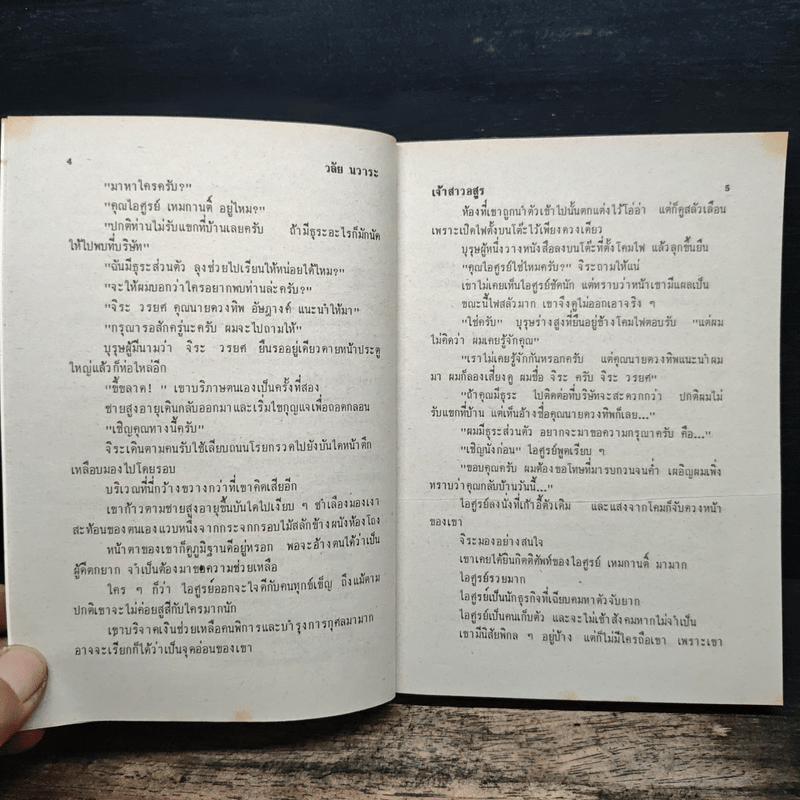 4
วลัย นวาระ
"มาหาใครครับ?"
"คุณไอศูรย์ เหมกานติ์ อยู่ไหม?"
"ปกติท่านไม่รับแขกที่บ้านเลยครับ ถ้ามีธุระอะไรก็มักนัด
ให้ไปพบที่บริษัท"
"ฉันมีธุระส่วนตัว ลุงช่วยไปเรียนให้หน่อยได้ไหม?"
"จะให้ผมบอกว่าใครอยากพบท่านล่ะครับ?"
"จิระ วรยศ คุณนายดวงทิพ อัษฎางค์ แนะนำให้มา"
"กรุณารอสักครู่นะครับ ผมจะไปถามให้"
บุรุษผู้มีนามว่า จิระ วรยศ ยืนรออยู่เดียวดายหน้าประตู
ใหญ่แล้วก็ห่อไหล่อีก
"ขี้ขลาด!" เขาบริภาษตนเองเป็นครั้งที่สอง
ชายสูงอายุเดินกลับออกมาและเริ่มไขกุญแจเพื่อถอดกลอน
"เชิญคุณทางนี้ครับ"
จิระเดินตามคนรับใช้เลียบถนนโรยกรวดไปยังบันไดหน้าตึก
เหลือบมองไปโดยรอบ
บริเวณที่นี่กว้างขวางกว่าที่เขาคิดเสียอีก
เขาก้าวตามชายสูงอายุขึ้นบันไดไปเงียบ ๆ ชำเลืองมองเงา
สะท้อนของตนเองแวบหนึ่งจากกระจกกรอบไม้สลักข้างผนังห้องโถง
หน้าตาของเขาก็ดูภูมิฐานดีอยู่หรอก พอจะอ้างตนได้ว่าเป็น
ผู้ดีตกยาก จำเป็นต้องมาขอความช่วยเหลือ
ใคร ๆ ก็ว่า ไอศูรย์ออกจะใจดีกับคนทุกข์เข็ญ ถึงแม้ตาม
ปกติเขาจะไม่ค่อยสู่สี่กับใครมากนัก
เขาบริจาคเงินช่วยเหลือคนพิการและบำรุงการกุศลมามาก
อาจจะเรียกก็ได้ว่าเป็นจุดอ่อนของเขา
เจ้าสาวอสูร
5
ห้องที่เขาถูกนำตัวเข้าไปนั้นตกแต่งไว้โอ่อ่า แต่ก็ดูสลัวเลือน
เพราะเปิดไฟตั้งบนโต๊ะไว้เพียงดวงเดียว
บุรุษผู้หนึ่งวางหนังสือลงบนโต๊ะที่ตั้งโคมไฟ แล้วลุกขึ้นยืน
"คุณไอศูรย์ใช่ไหมครับ?" จิระถามให้แน่
เขาไม่เคยเห็นไอศูรย์ชัดนัก แต่ทราบว่าหน้าเขามีแผลเป็น
ขณะนี้ไฟสลัวมาก เขาจึงดูไม่ออกเอาจริง ๆ
"ใช่ครับ" บุรุษร่างสูงที่ยืนอยู่ข้างโคมไฟตอบรับ "แต่ผม
ไม่คิดว่า ผมเคยรู้จักคุณ"
"เราไม่เคยรู้จักกันหรอกครับ แต่คุณนายดวงทิพแนะนำผม
มา ผมก็ลองเสี่ยงดู ผมชื่อ จิระ ครับ จิระ วรยศ"
"ถ้าคุณมีธุระ ไปติดต่อที่บริษัทจะสะดวกกว่า ปกติผมไม่
รับแขกที่บ้าน แต่เห็นอ้างชื่อคุณนายดวงทิพก็เลย..."
"ผมมีธุระส่วนตัว อยากจะมาขอความกรุณาครับ คือ..."
"เชิญนั่งก่อน" ไอศูรย์พูดเรียบ ๆ
"ขอบคุณครับ ผมต้องขอโทษที่มารบกวนจนค่ำ เผอิญผมเพิ่ง
ทราบว่าคุณกลับบ้านวันนี้..."
ไอศูรย์ลงนั่งที่เก้าอี้ตัวเดิม และแสงจากโคมก็จับดวงหน้า
ของเขา
จิระมองอย่างสนใจ
เขาเคยได้ยินกิตติศัพท์ของไอศูรย์ เหมกานติ์ มามาก
ไอศูรย์รวยมาก
ไอศูรย์เป็นนักธุรกิจที่เฉียบคมหาตัวจับยาก
ไอศูรย์เป็นคนเก็บตัว และจะไม่เข้าสังคมหากไม่จำเป็น
เขามีนิสัยพิกล ๆ อยู่บ้าง แต่ก็ไม่มีใครถือเขา เพราะเขา